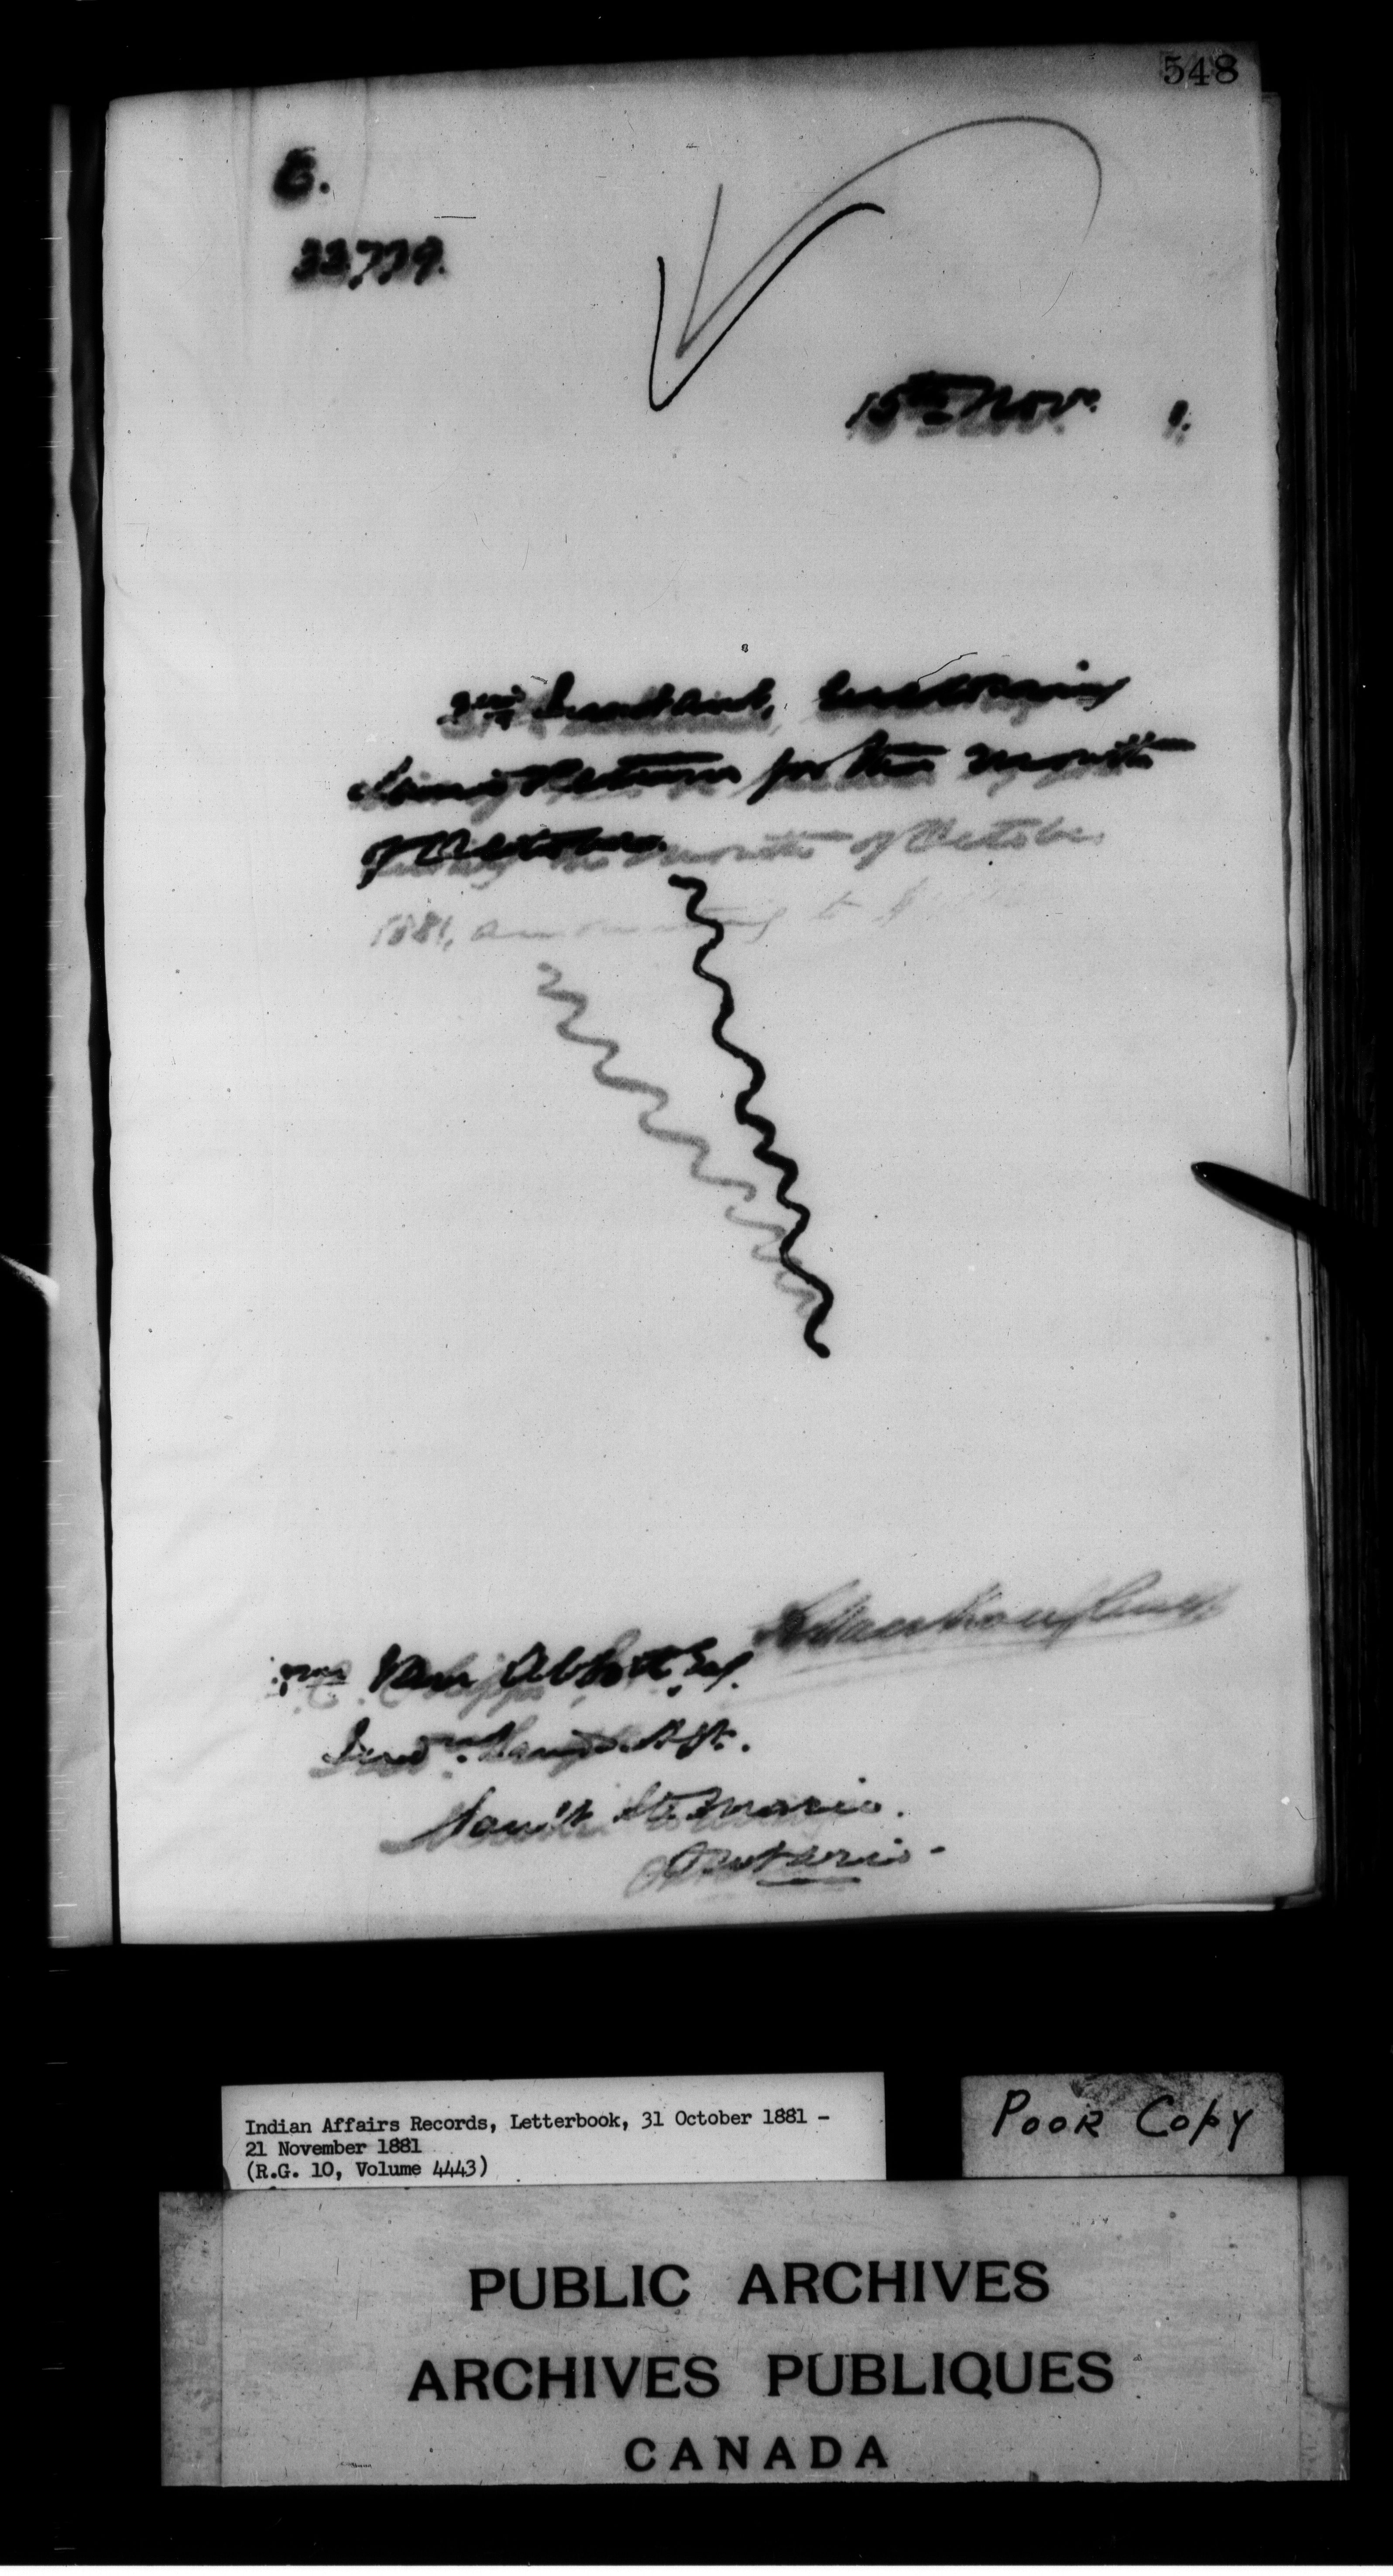 548
E.
33779.
15th Novr. 1.
Instant, enclosing
Return for the month
of October.
month of October
1881, amounting to $
Wm Van Abbott Esq.
Ind. Agt.
Sault Ste Marie.
Ontario.
Indian Affairs Records, Letterbook, 31 October 1881 -
21 November 1881
(R.G. 10, Volume 4443)
POOR COPY
PUBLIC ARCHIVES
ARCHIVES PUBLIQUES
CANADA